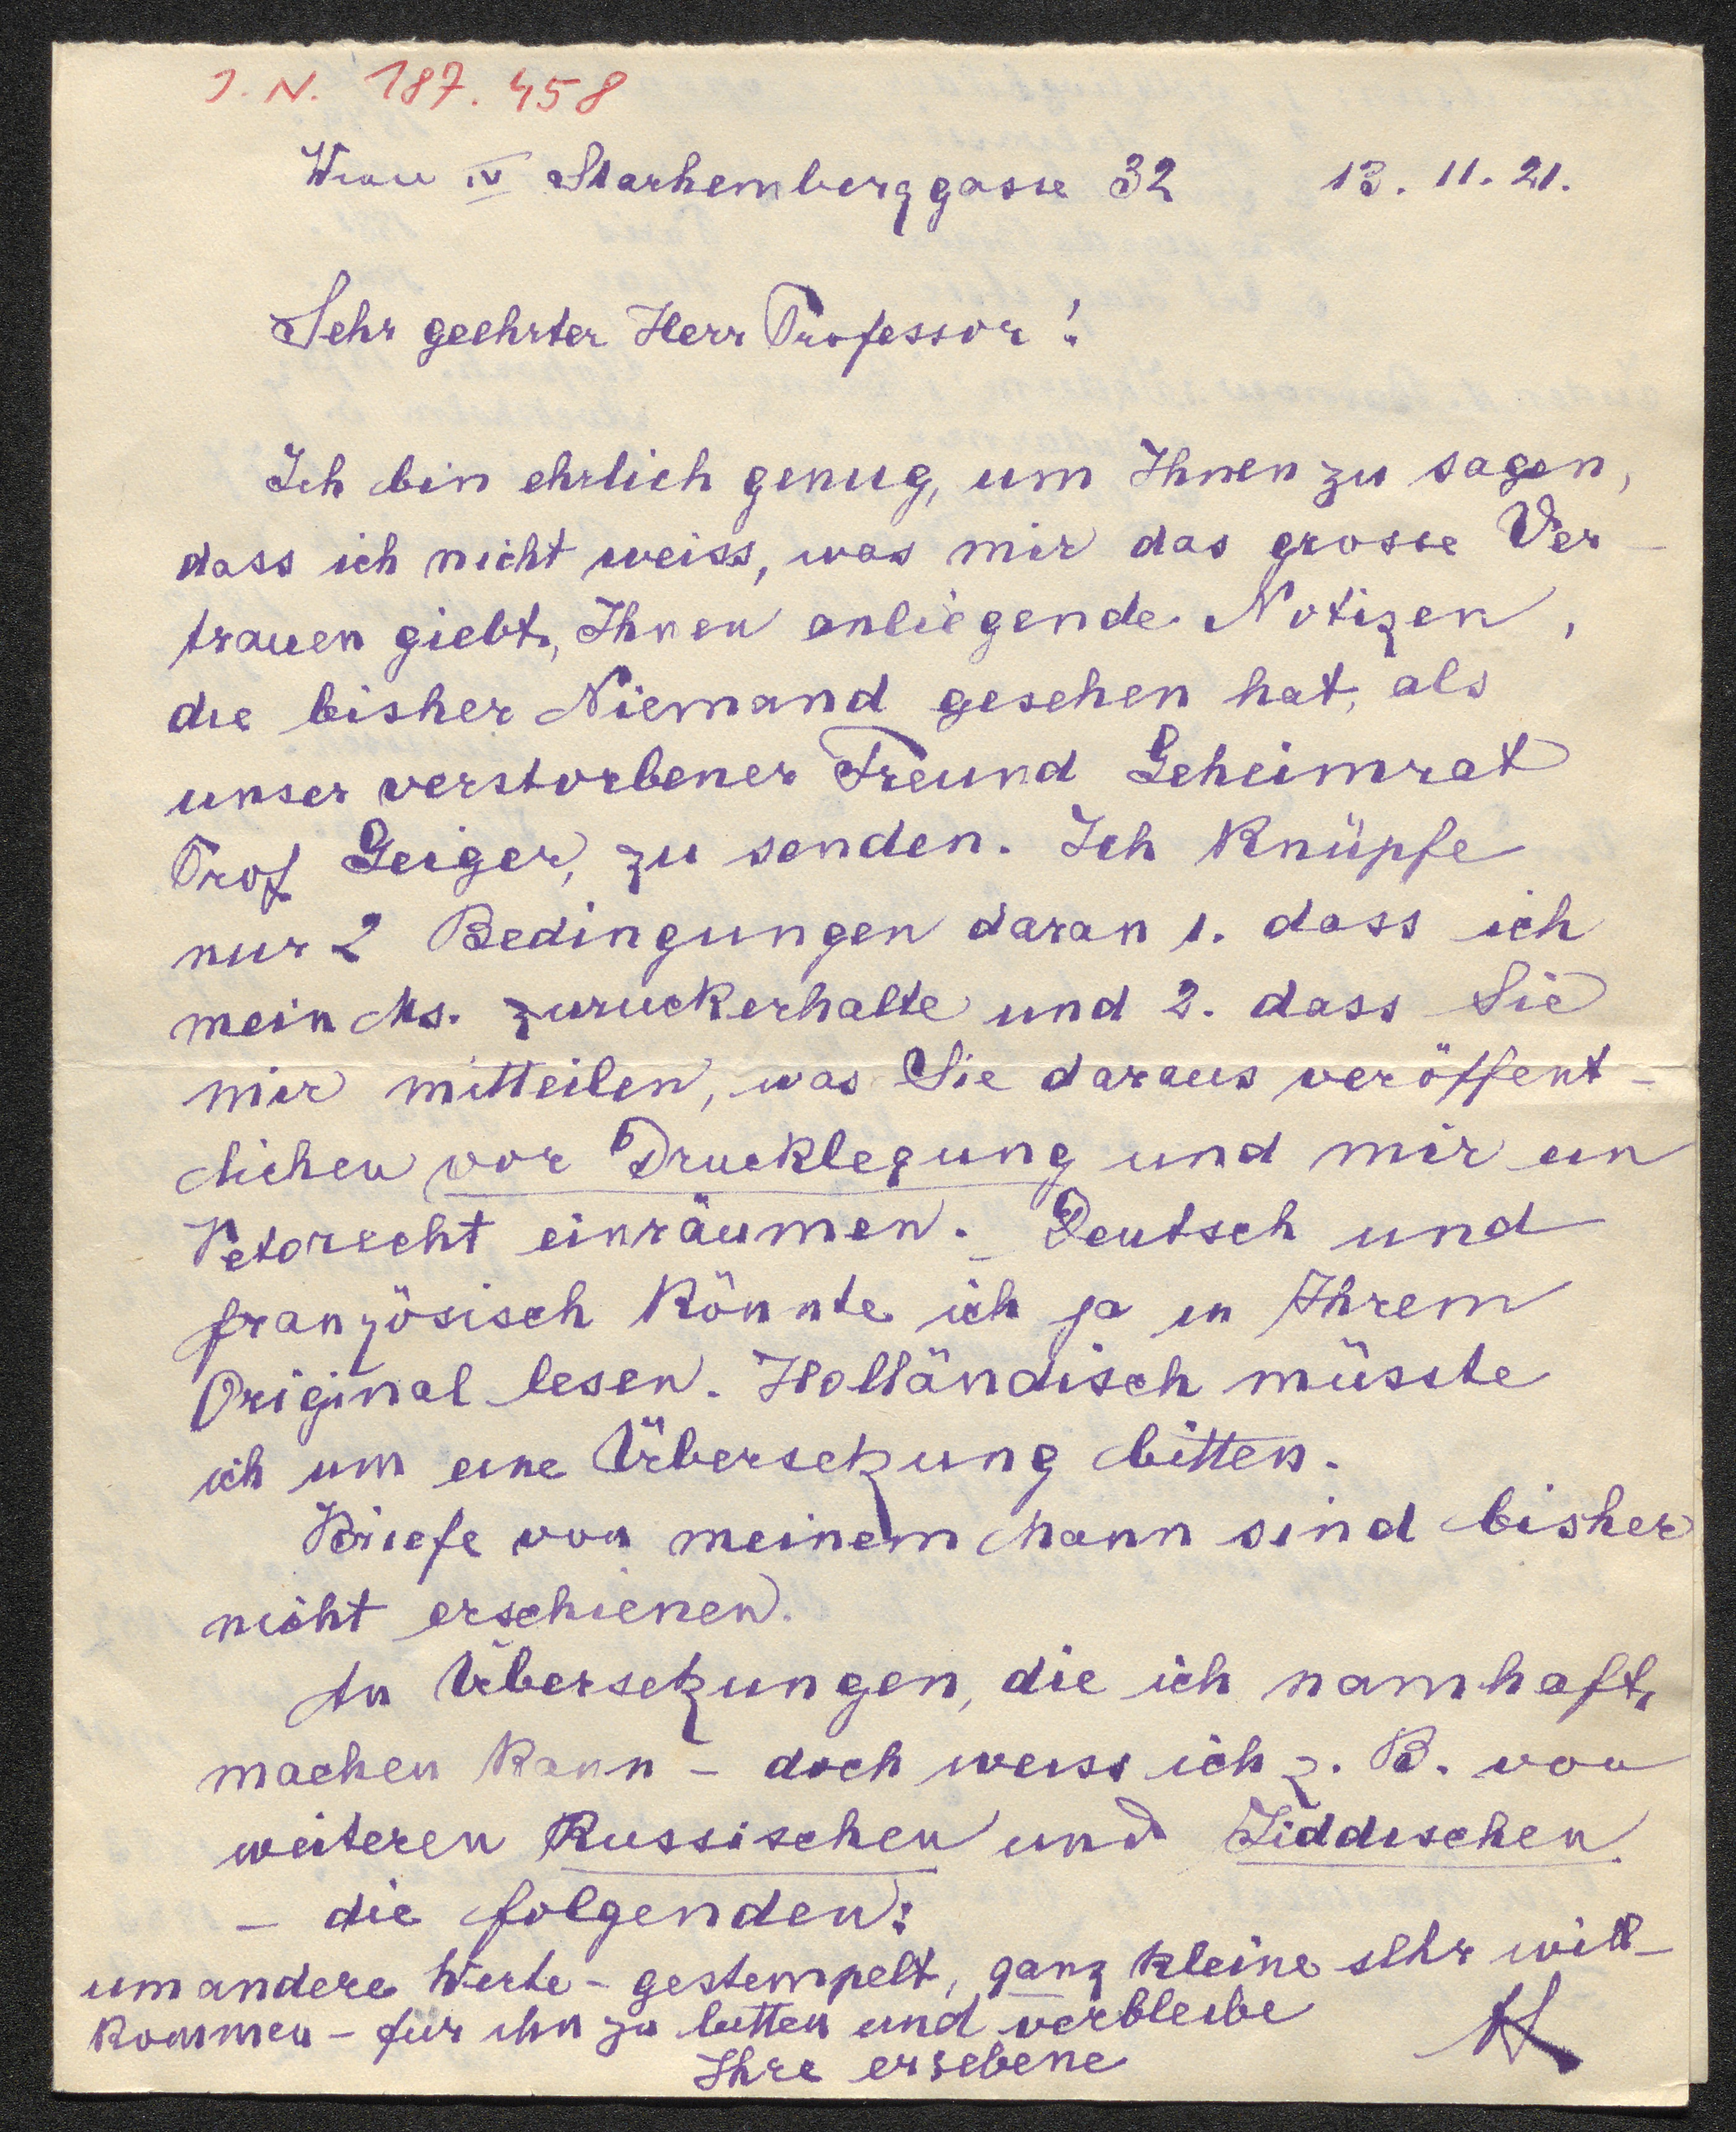 J. N. 187.458
Wien IV Starhemberggasse 32 13. 11. 21.
Sehr geehrter Herr Professor!
Ich bin ehrlich genug, um Ihnen zu sagen,
dass ich nicht weiss, was mir das grosse Ver-
trauen giebt, Ihnen anliegende Notizen,
die bisher Niemand gesehen hat, als
unser verstorbener Freund Geheimrat
Prof Geiger, zu senden. Ich knüpfe
nur 2 Bedingungen daran 1. dass ich
mein Ms. zuruckerhalte und 2. dass Sie
mir mitteilen, was Sie daraus veröffent-
lichen vor Drucklegung und mir ein
Vetorecht einräumen. Deutsch und
französisch könnte ich ja in Ihrem
Original lesen. Holländisch müsste
ich um eine Übersetzung bitten.
Briefe von meinem Mann sind bisher
nicht erschienen.
An Übersetzungen, die ich namhaft
machen kann – doch weiss ich z. B. von
weiteren Russischen und Jiddischen
– die folgenden:
um andere Werte – gestempelt, ganz kleine sehr will-
kommen – für ihn zu bitten und verbleibe
Ihre ergebene